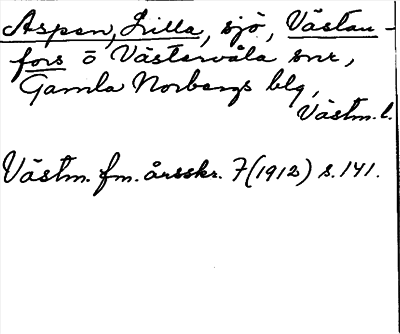 Aspen, Lilla, sjö, Västan-
fors o Västervåla snr,
Gamla Norbergs blg,
Västm. l.
Västm. fm. årsskr. 7 (1912) s. 141.